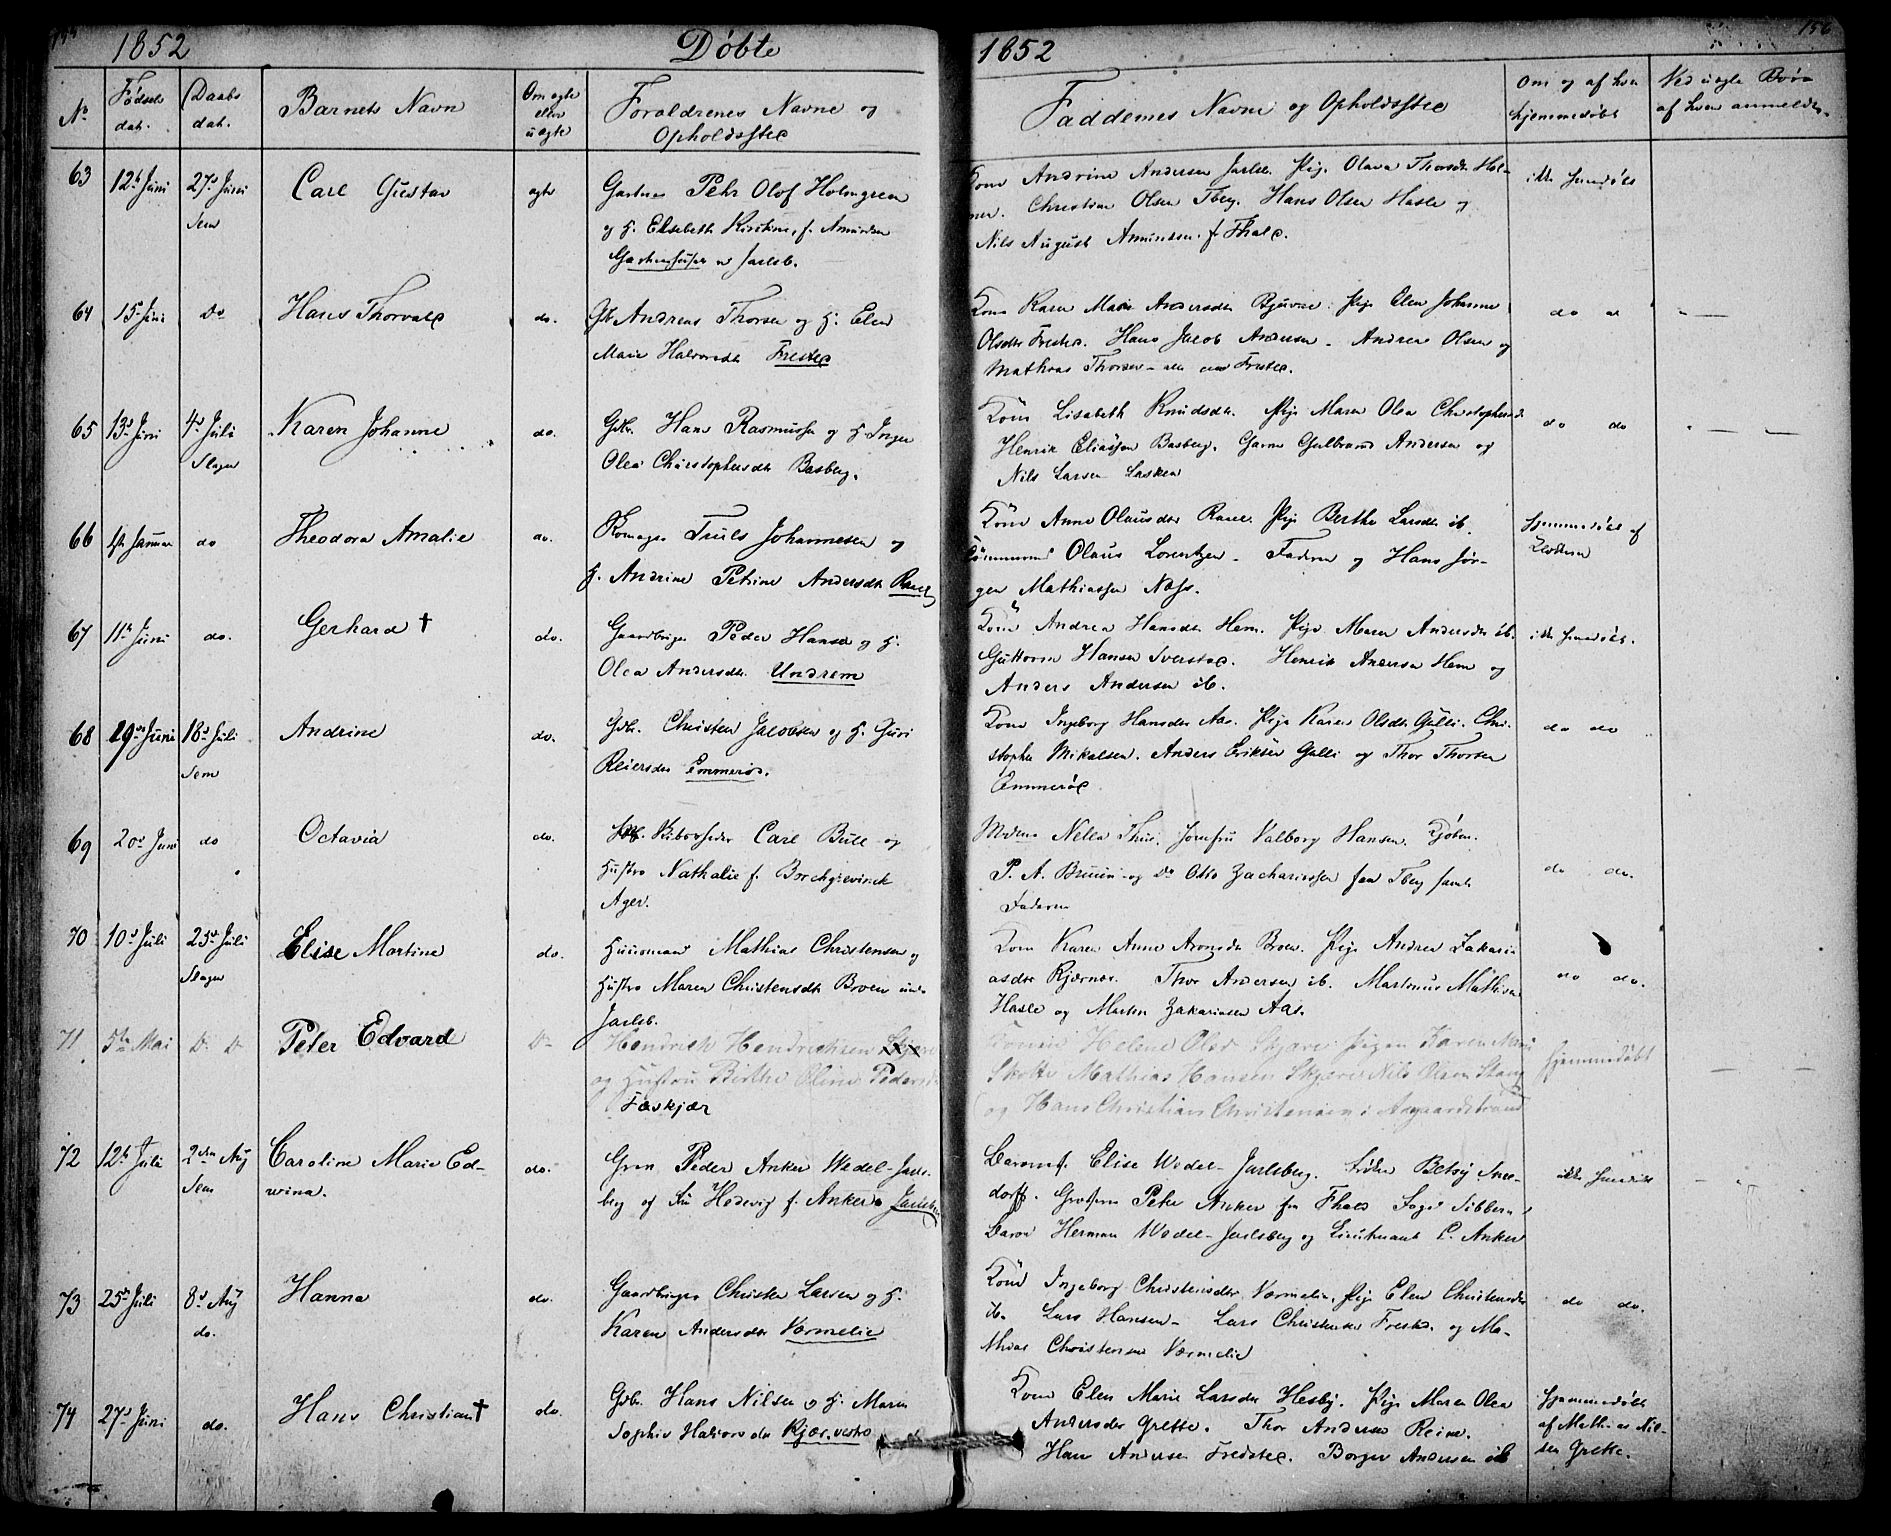 1852 Døbte
1852
156
No
Fødsels dat.
Daabs dat.
Barnets Navn
Om ægte eller uægte
Forældrenes Navne og Opholdssted
Faddernes Navne og Opholdssted
Om og af hvem hjemmedøbt
Ved uægte Børn af hvem anmeldte
63 12te Juni 27d Juni Sem Carl Gustav ægte
Gartner Pehr Olof Holmgren
og H. Elisabeth Kirstine, f. Amundsen
Jarlsb.
Kone Andrine Andersen Jarlsb. Pige Olava Thorsdtr Hol-
Christian Olsen Tberg. Hans Olsen Hasle og
Nils August Amundsen f. Thale.
ikke hjemmedøbt
64 15de Juni Do Hans Thorvald do.
Andreas Thorsen og H. Elen
Marie Halvorsdtr Frested
Kone Karen Marie Andersdtr Pige Elen Johanne
Olsdtr Frested. Hans Jacob Andersen. Andreas Olsen og
Mathias Thorsen - Frested.
do
65 13d Juni 4d Juli Slagen Karen Johanne do.
Gdbr. Hans Rasmussen og H. Inger
Olea Christophersdtr Basberg.
Kone Lisabeth Knudsdtr. Pige Maren Olea Christophersd
Henrik Eliassen Basberg. Gulbrand Andersen og
Nils Larsen Lasken
do do
66 Januar do Theodora Amalie do.
Truls Johannesen og
H. Andrine Petrine Andersdtr Rael
Kone Anne Olausdtr Rael. Pige Berthe Larsdtr ib.
Tømmermd Olaus Lorentzen. Faderen og Hans Jør-
gen Mathiassen Næs.
hjemmedøbt af
67 11te Juni do. Gerhard † do.
Gaardbruger Peder Hansen og H.
Olea Andersdtr. Undrem
Kone Andrea Hansdtr Hem. Pige Maren Andersdtr ib.
Guttorm Hansen Iverstad. Henrik Andersen Hem og
Anders Andersen ib.
ikke hjemmedøbt.
68 29de Juni 18d Juli Sem Andrine do.
Gdbr. Christen Jacobsen og H. Guri
Reiersdtr Emmerød.
Kone Ingeborg Hansdtr Aas. Pige Karen Olsdtr Gulli. Chri-
stopher Mikalsen. Anders Eriksen Gulli og Thor Thorsen
Emmerød
do do
69 20d Juni do Octavia do.
Carl Bull og
Hustro Nathalie f. Borchgrevinck
Ager.
Madame Nella Thue. Jomfru Valborg Hansen. Kjøbm.
P. A. Bruun og Do Otto Zachariassen fra Tberg samt
Faderen
do do.
70 10d Juli 25d Juli Slagen Elise Martine do.
Huusmand Mathias Christensen og
Hustro Maren Christensdtr Broen under
Jarlsb.
Kone Karen Anne Aronsdtr Broen. Pige Andrea Zakari-
asdtr Kjærnæs. Thor Andersen ib. Martinus Mathisen
Hasle og Martin Zakariasen Aas.
do do.
71 5te Mai D. D. Peter Edvard Do
Hendrich Hendrichsen Skjære
og Hustru Birthe Oline Pedersd
Fæskjær
Konen Helene Olsd Skjære. Pigen Karen Marie
Skotte Mathias Hansen Skjære Nils Olsen Stang
og Hans Christian Christensen i Aasgaardstrand
hjemmedøbt
72 12te Juli 2den Aug Sem Caroline Marie Ed-
wina. do.
Grev Peder Anker Wedel-Jarls-
berg og Fru Hedevig f. Anker Jarlsberg
Baronesse Elise Wedel-Jarlsberg. Frøken Betsy Snee-
dorff. Peter Anker fra Thale Foged Sibbern
Baron Herman Wedel-Jarlsberg og Lieutenant C. Anker
ikke hjemmedøbt
73 25de Juli 8d Aug do. Hanna do.
Gaardbruger Christen Larsen og H.
Karen Andersdtr Vermelie
Kone Ingeborg Christensdtr Vermelie, Pige Elen Christensdtr
ib. Lars Hansen - Lars Christensen Frested. og Ma-
thias Christensen Vermelie
do do.
74 27d Juni do. Hans Christian † do.
Gdbr. Hans Nilsen og H. Maren
Sophie Halvorsdtr Kjær vestre
Kone Elen Marie Larsdtr Hesby. Pige Maren Olea
Andersdtr Grette. Thor Andersen Reine.
Hans Andersen Fredsted. Borger Andersen ib
hjemmedøbt
af Mathias Nil-
sen Grette.